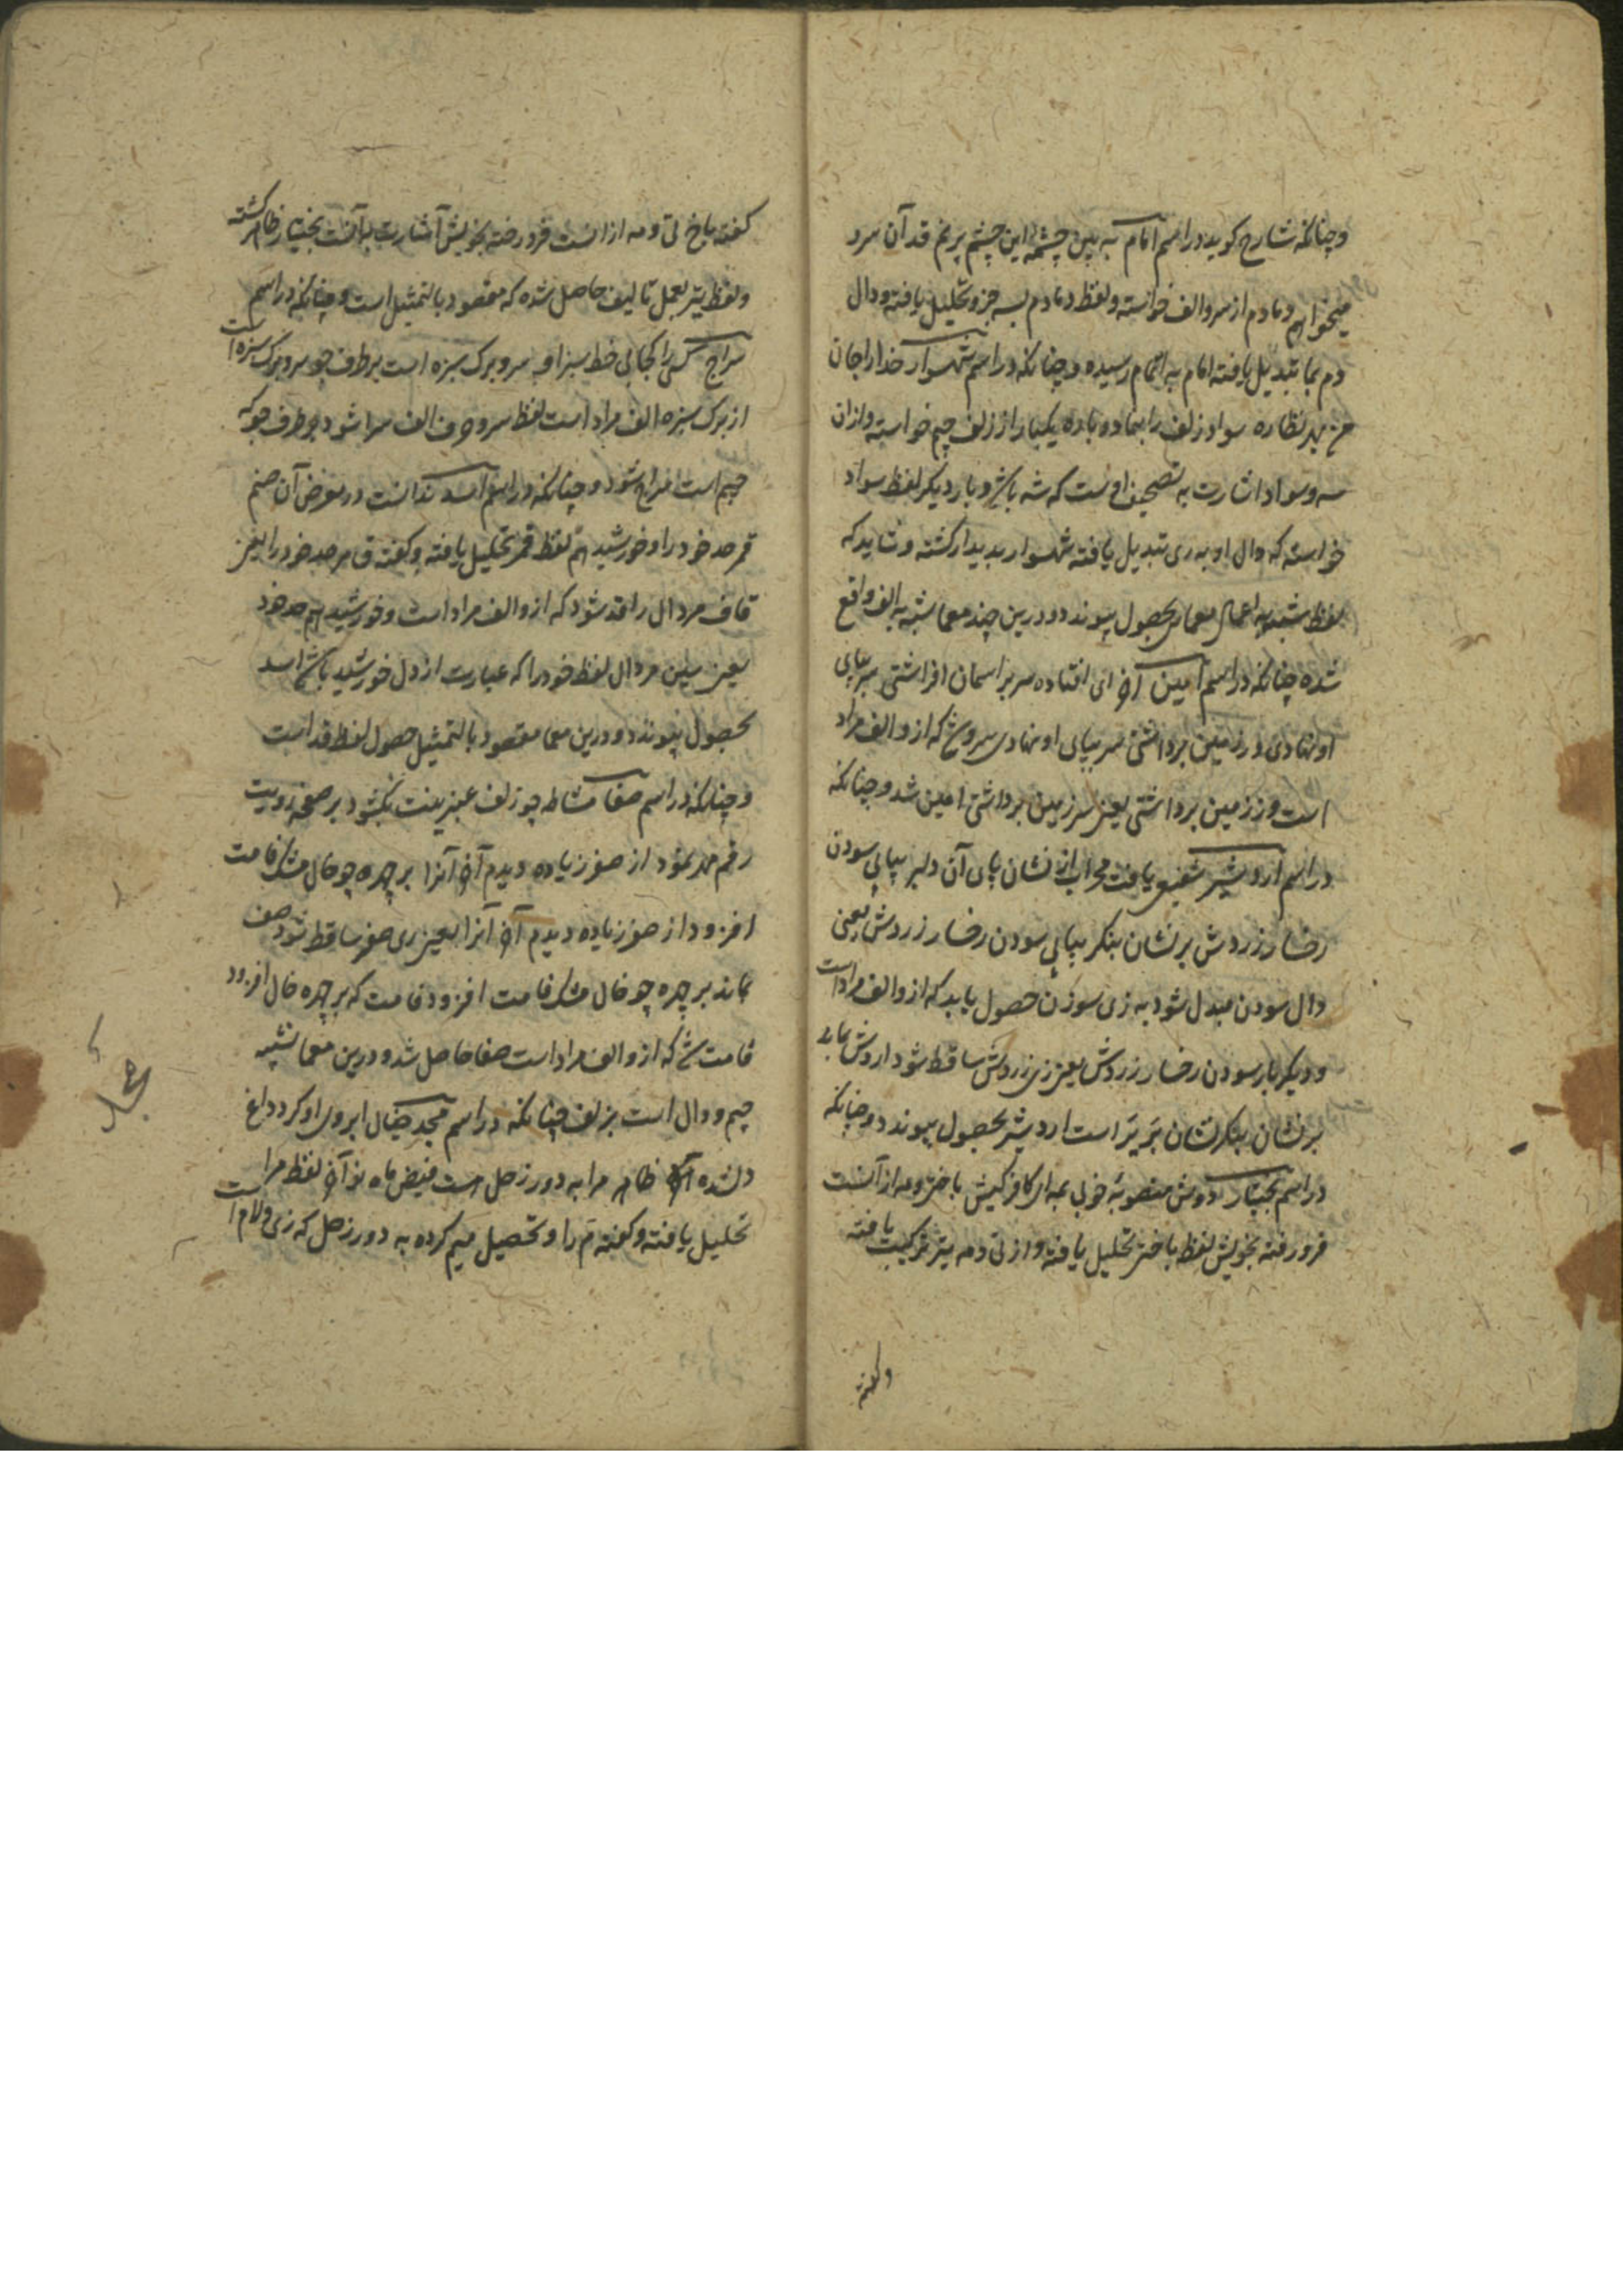 وچنانکه شارح کوید در اسم امام به بین چشمهٔ این چشم پرنم قد آن سرو
میخواهم دمادم از سرو الف خواسته ولفظ دمادم بسه جزو تحلیل یافته ودال
دم بما تبدیل یافته امام به اتمام رسیده وچنانکه در اسم شهسوار خدا را جان
من بهر نظاره سواد زلف را بنما دوباره یکبار از زلف جیم خواسته وازان
سه وسواد اشارت به تصحیف اوست که شه باشد وبار دیکر لفظ سواد
خواسته که دال او به ری تبدیل یافته شهسوار پدیدار کشته وشاید که
لفظ مشبه به اعمال معمایی بحصول پیوندد ودرین چند معما مشبه به الف واقع
شده چنانکه در اسم امین آخر ای افتاده سر بر اسمان افراشتی سر بپای
او نهادی وز زمین برداشتی سر بپای او نهادی سرو شد که ازو الف مراد
است وز زمین برداشتی یعنی سر زمین برداشتی امین شد وچنانکه
در اسم اردشیر شفیع یافت محراب از نشان پای آن دلبر بپایی سودن
رخسار زردش بر نشان بنکر بپایی سودن رخسار زردش یعنی
دال سودن مبدل شود به زی سوزن حصول یابد که ازو الف مراد است
ودیکر بار سودن رخسار زردش یعنی زی زردش ساقط شود اردش بماند
بر نشان بنکر نشان تیر یر است اردشیر بحصول پیوندد وچنانکه
در اسم بختیار دوش منصوبهٔ خوبی بمه ای کافر کیش باختر ومه از آنست
فرو رفته بخویش لفظ باختر تحلیل یافته واز تی ومه یتر ترکیب یافته
وکفته
کفته باخ تی ومه ازانست فرو رفته بخویش آ اشارت بآنست بختیار ظاهر کشته
ولفظ یتر بعمل تالیف حاصل شده که مقصود بالتمثیل است وچنانکه در اسم
سراج کس را کجا بی خط سبز او سر وبرک سبزه است بر طرف جو سر وبرک سبزه است
از برک سبزه الف مراد است لفظ سر وحرف الف سرا شود بر طرف جو که
جیم است سراج شود وچنانکه در اسم اسد ندانست در معرض آن صنم
قمر حد خود را وخورشید هم لفظ قمر تحلیل یافته وکفته ق مر حد خود را یعنی
قاف مر دال را قد شود که ازو الف مراد است وخورشید هم حد خود
یعنی سین مر دال لفظ خود را که عبارت از دل خورشید باشد اسد
بحصول پیوندد ودرین معما مقصود بالتمثیل حصول لفظ قد است
وچنانکه در اسم صفا مشاطه چو زلف عنبرینت بکشود بر صفحه رویت
رقم مه بنمود از صفر زیاده دیدم آخر آنرا بر چهره چو خال مشک فامت
افزود از صفر زیاده دیدم آخر آنرا یعنی ری صفر ساقط شود صف
بماند بر چهره چو خال مشک فامت افزود فامت که بر چهره خال افزود
قامت شد که ازو الف مراد است صفا حاصل شد ودرین معما تشبیه
جیم ودال است بزلف چنانکه در اسم مجد خیال ابروی او کرد داغ
دلشده ظاهر مرا به دور زحل هست فیض ماه نو آخر لفظ مرا
تحلیل یافته وکفته م را وتحصیل میم کرده به دور زحل که زی ولام است